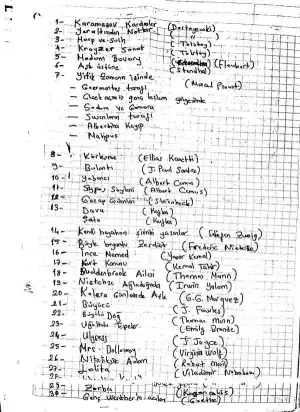 1- Karamazov Kardeşler (Dostoyevski)
2- Yeraltından Notlar ( " )
3- Harp ve Sulh ( Tolstoy )
4- Kroyzer Sonat ( Tolstoy )
5- Madam Bovary (Flaubert)
6- Aşk üstüne (Stendhal)
7- Yitik Zamanın İzinde (Marcel Proust)
— Guermantes tarafı
— Çiçek açmış genç kızların gölgesinde
— Sodom ve Gomora
— Swanların tarafı
— Albertine Kayıp
— Mahpus
8- Körleşme (Elias Canetti)
9- Bulantı (J. Paul Sartre)
10- Yabancı (Albert Camus)
11- (Albert Camus)
12- Gazap Üzümleri (Steinbeck)
13- Dava (Kafka)
Şato (Kafka)
14- Kendi hayatının şiirini yazanlar (Stefan Zweig)
15- Böyle buyurdu Zerdüşt (Frederic Nietzsche)
16- İnce Memed (Yaşar Kemal)
17- Kurt Kanunu (Kemal Tahir)
18- Buddenbrook Ailesi (Thomas Mann)
19- Nietzche Ağladığında (Irwin Yalom)
20- Kolera Günlerinde Aşk (G.G. Marquez)
21- Büyücü (J. Fowles)
22- Büyülü Dağ (Thomas Mann)
23- Uğultulu Tepeler (Emily Bronte)
24- Ulysses (J. Joyce)
25- Mrs. Dalloway (Virginia Wolf)
26- Niteliksiz Adam (Robert Musil)
27- Lolita (Viladimir Nabakov)
29- Zorba (Kazancakis)
30- Genç Werther'in acıları (Goethe)